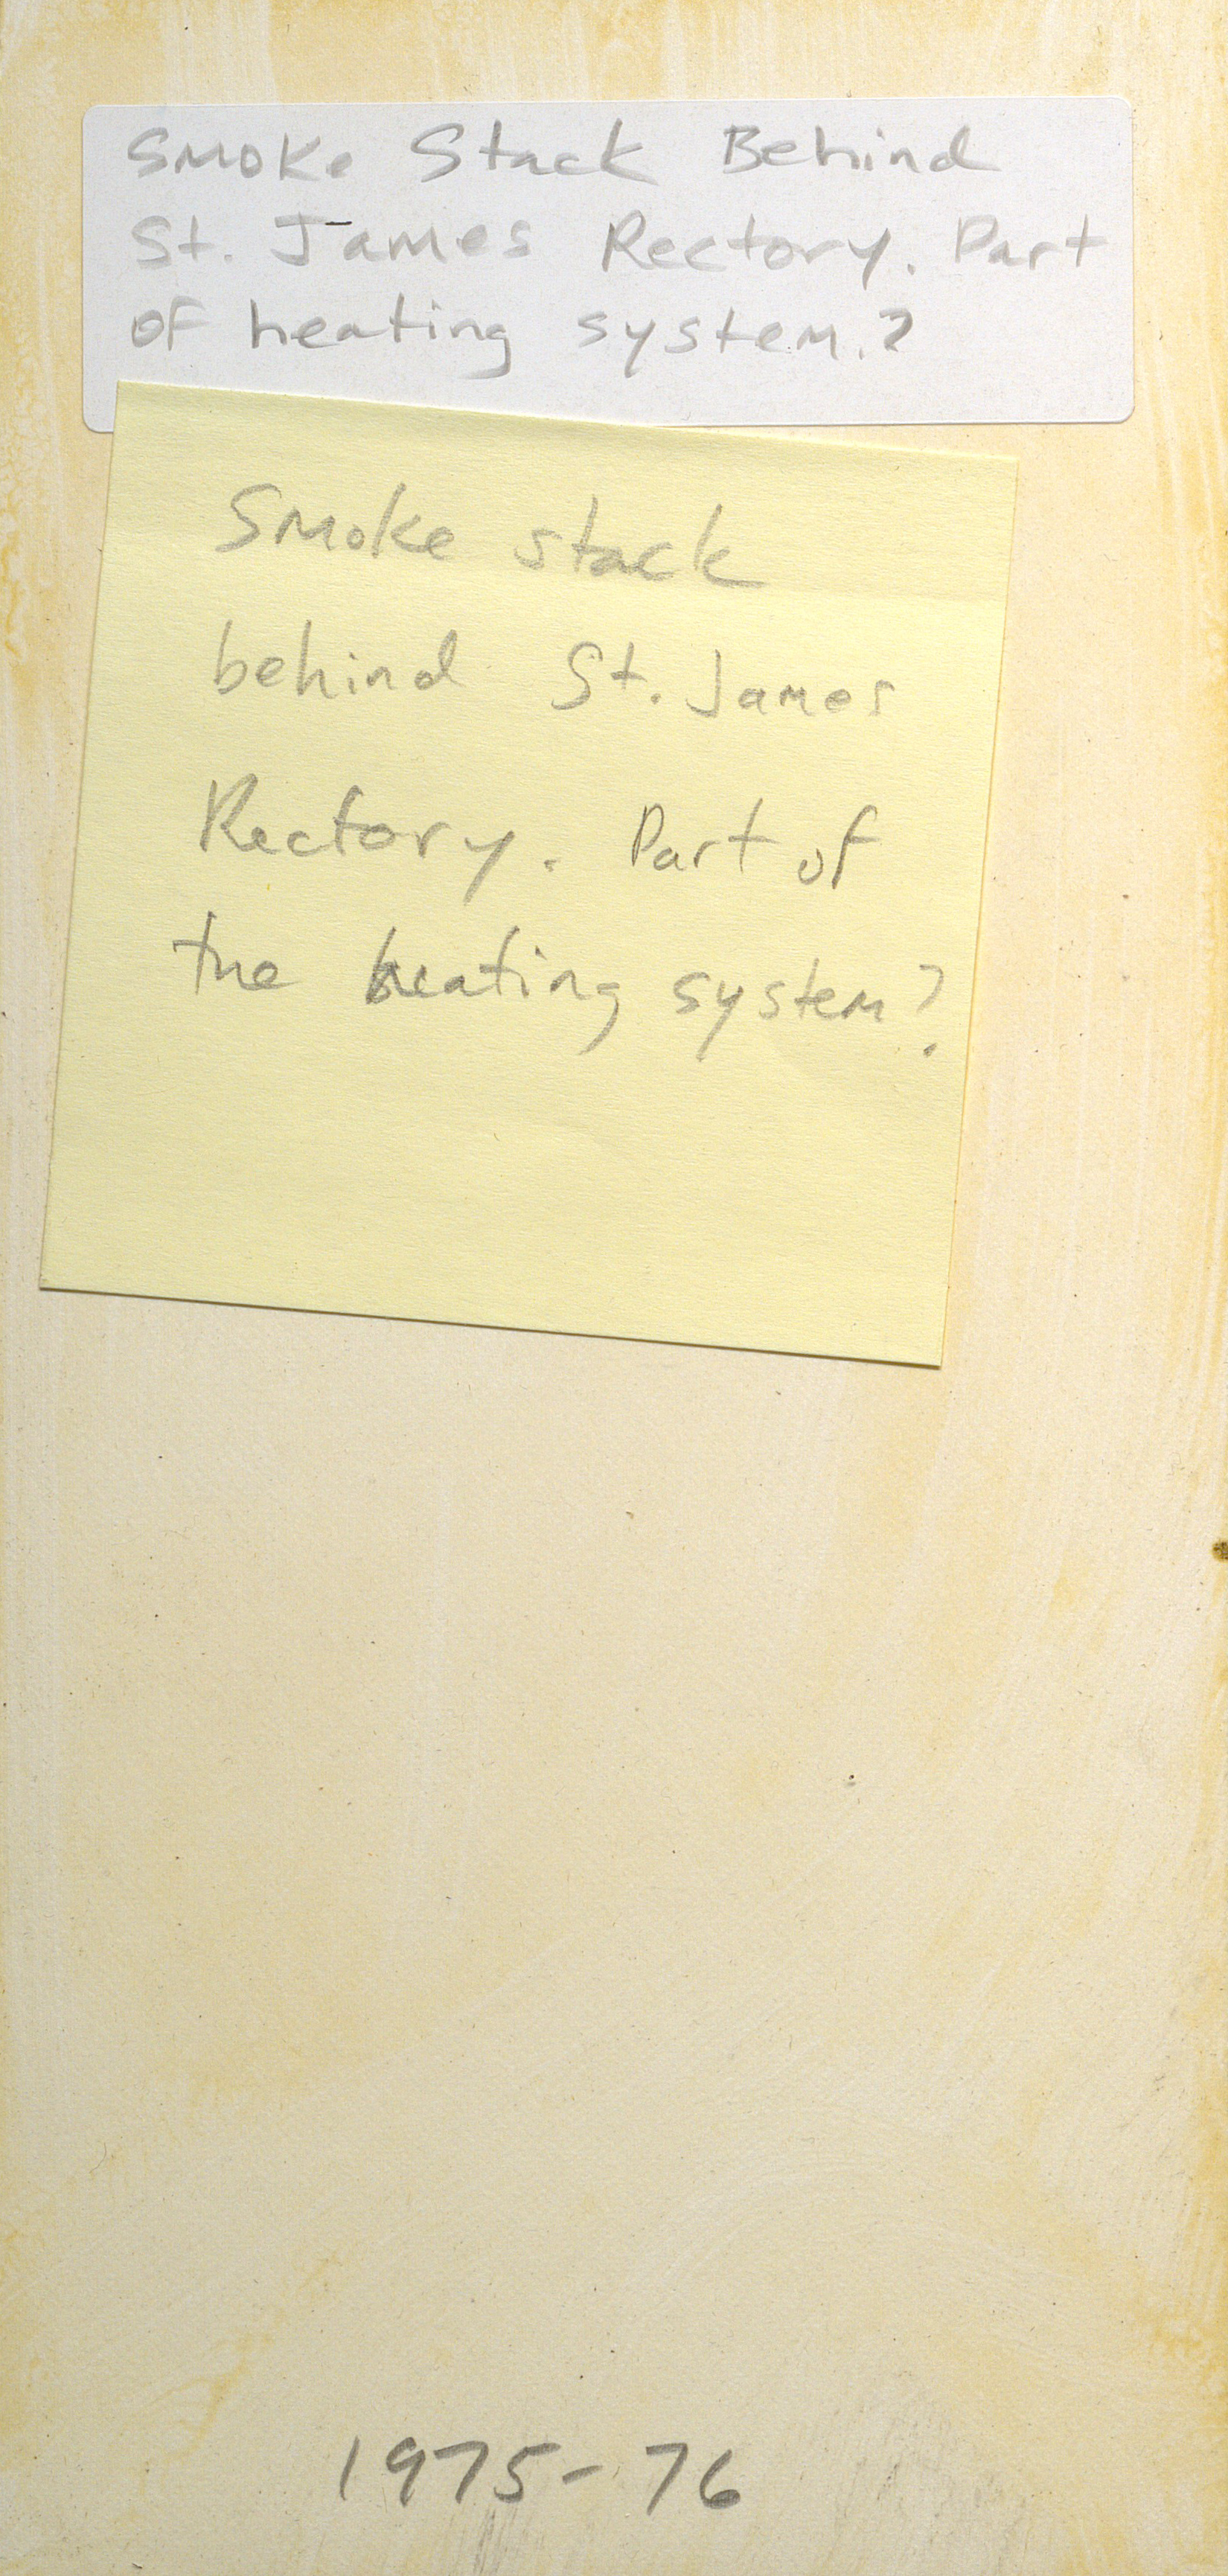 Smoke Stack Behind
St. James Rectory. Part
of heating system.?
Smoke stack
behind St. James
Rectory. Part of
the heating system?
1975-76